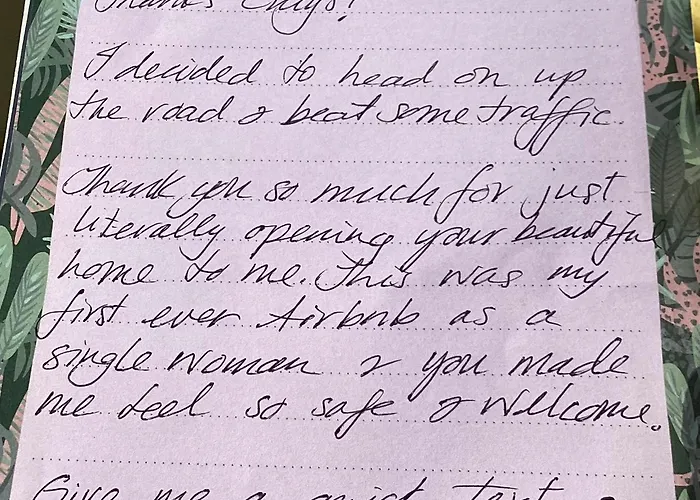 Thanks Guys!
I decided to head on up
the road & beat some traffic.
Thank you so much for just
literally opening your beautiful
home to me. This was my
first ever Airbnb as a
single woman & you made
me feel so safe & welcome.
Give me a quick text